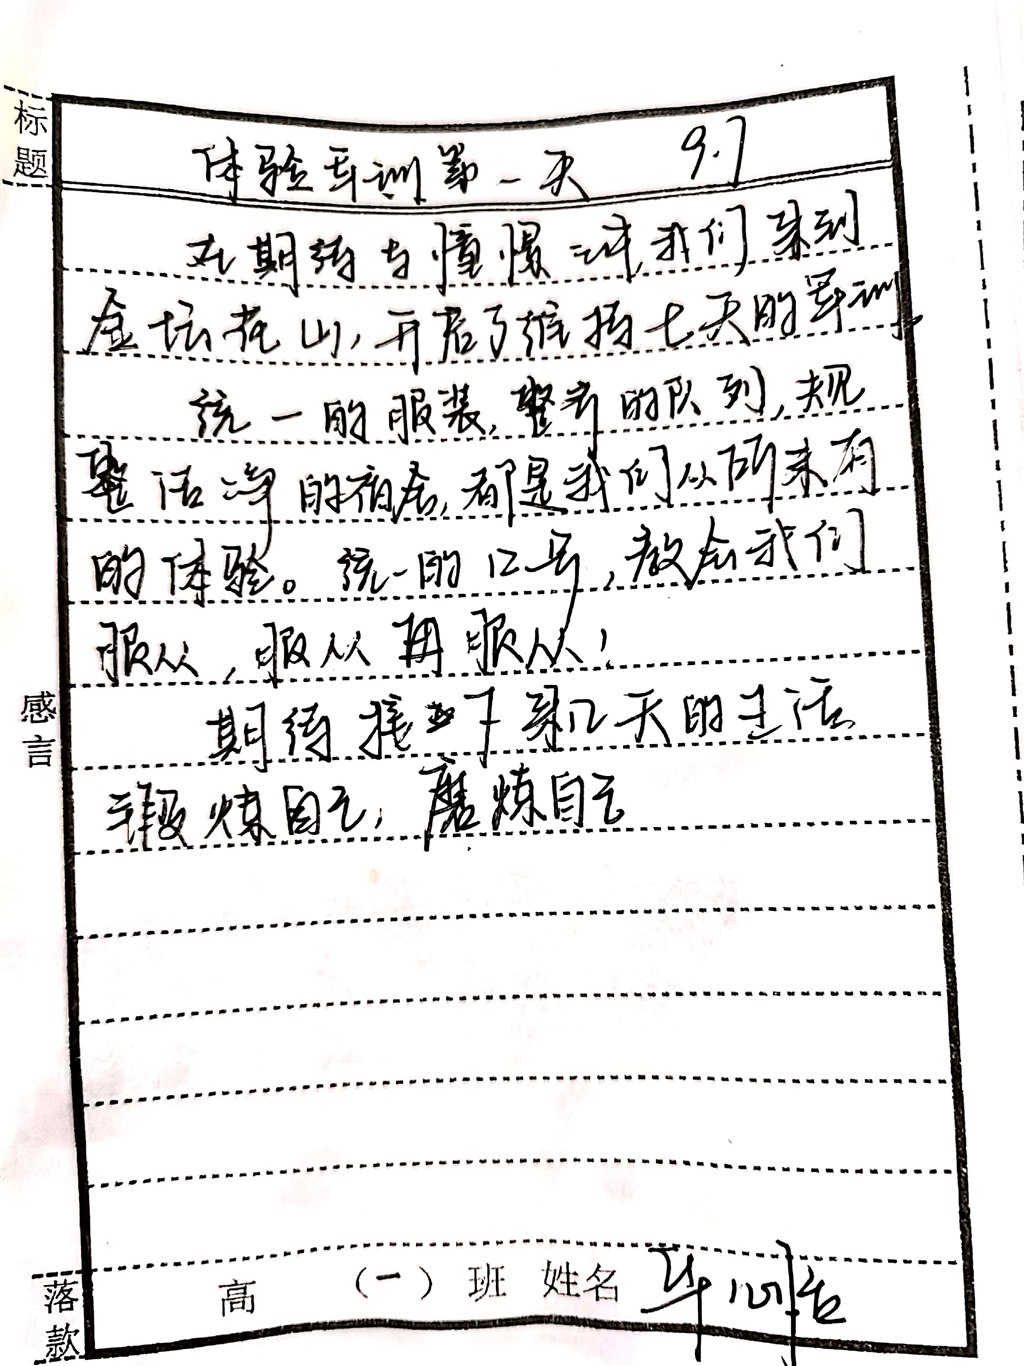 标题
体验军训第一天 9.7
在期待与憧憬之中,我们来到
金坛茅山,开启了维持七天的军训
统一的服装,整齐的队列,规
整洁净的宿舍,都是我们从所未有
的体验。统一的口号,教会我们
服从,服从再服从!
感言
期待接下来几天的生活
锻炼自己,磨炼自己
落款
高 (一) 班 姓名